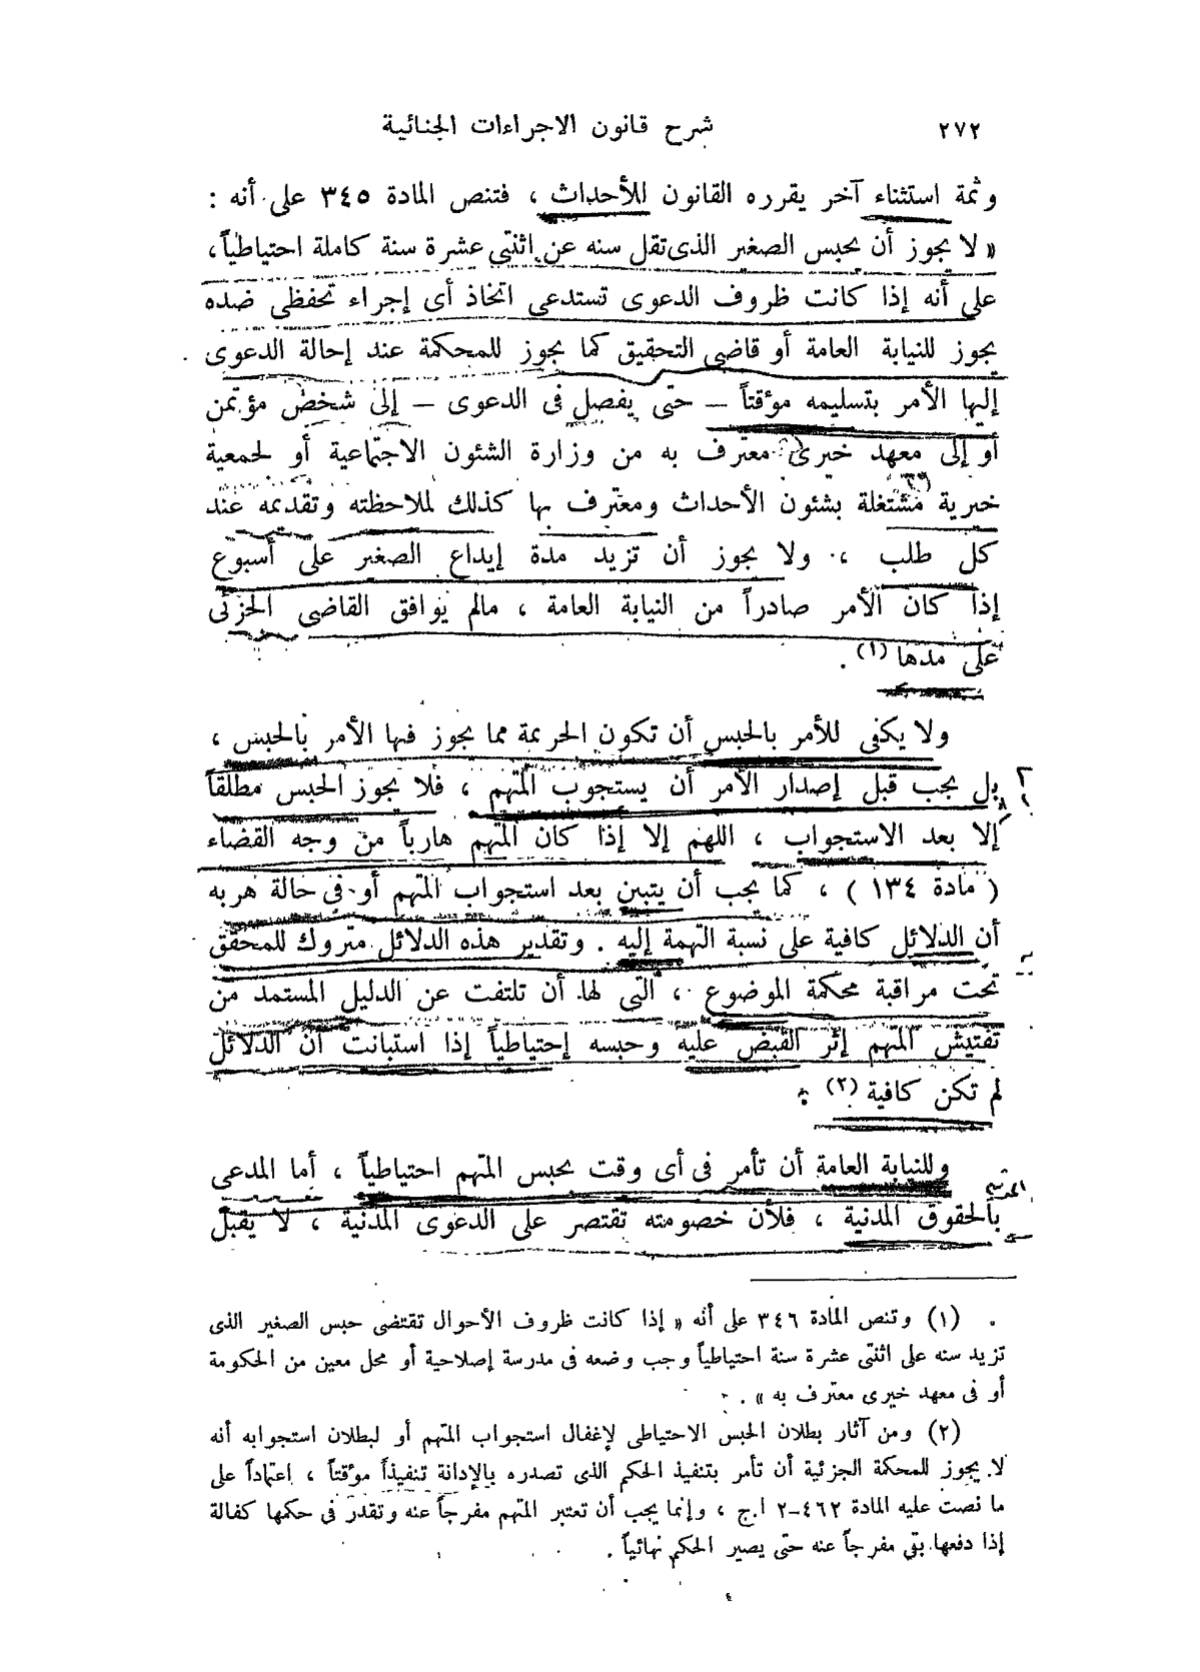 شرح قانون الاجراءات الجنائية ٢٧٢
وثمة استثناء آخر يقرره القانون للأحداث ، فتنص المادة ٣٤٥ على أنه :
« لا يجوز أن يحبس الصغير الذى تقل سنه عن اثنتى عشرة سنة كاملة احتياطياً ،
على أنه إذا كانت ظروف الدعوى تستدعى اتخاذ أى إجراء تحفظى ضده
يجوز للنيابة العامة أو قاضى التحقيق كما يجوز للمحكمة عند إحالة الدعوى
إليها الأمر بتسليمه مؤقتاً – حتى يفصل فى الدعوى – إلى شخص مؤتمن
أو إلى معهد خيرى معترف به من وزارة الشئون الاجتماعية أو لجمعية
خيرية مشتغلة بشئون الأحداث ومعترف بها كذلك لملاحظته وتقديمه عند
كل طلب ، ولا يجوز أن تزيد مدة إيداع الصغير على أسبوع
إذا كان الأمر صادراً من النيابة العامة ، مالم يوافق القاضى الجزئى
على مدها (١) .
ولا يكفى للأمر بالحبس أن تكون الجريمة مما يجوز فيها الأمر بالحبس ،
بل يجب قبل إصدار الأمر أن يستجوب المتهم ، فلا يجوز الحبس مطلقاً
إلا بعد الاستجواب ، اللهم إلا إذا كان المتهم هارباً من وجه القضاء
( مادة ١٣٤ ) ، كما يجب أن يتبين بعد استجواب المتهم أو فى حالة هربه
أن الدلائل كافية على نسبة التهمة إليه . وتقدير هذه الدلائل متروك للمحقق
تحت مراقبة محكمة الموضوع ، التى لها أن تلتفت عن الدليل المستمد من
تفتيش المتهم إثر القبض عليه وحبسه إحتياطياً إذا استبانت أن الدلائل
لم تكن كافية (٢) .
وللنيابة العامة أن تأمر فى أى وقت بحبس المتهم احتياطياً ، أما المدعى
بالحقوق المدنية ، فلأن خصومته تقتصر على الدعوى المدنية ، لا يقبل
(١) وتنص المادة ٣٤٦ على أنه « إذا كانت ظروف الأحوال تقتضى حبس الصغير الذى
تزيد سنه على اثنتى عشرة سنة احتياطياً وجب وضعه فى مدرسة إصلاحية أو محل معين من الحكومة
أو فى معهد خيرى معترف به » .
(٢) ومن آثار بطلان الحبس الاحتياطى لإغفال استجواب المتهم أو لبطلان استجوابه أنه
لا يجوز للمحكمة الجزئية أن تأمر بتنفيذ الحكم الذى تصدره بالإدانة تنفيذاً مؤقتاً ، اعتماداً على
ما نصت عليه المادة ٤٦٢–٢ ا.ج ، وإنما يجب أن تعتبر المتهم مفرجاً عنه وتقدر فى حكمها كفالة
إذا دفعها بقى مفرجاً عنه حتى يصير الحكم نهائياً .